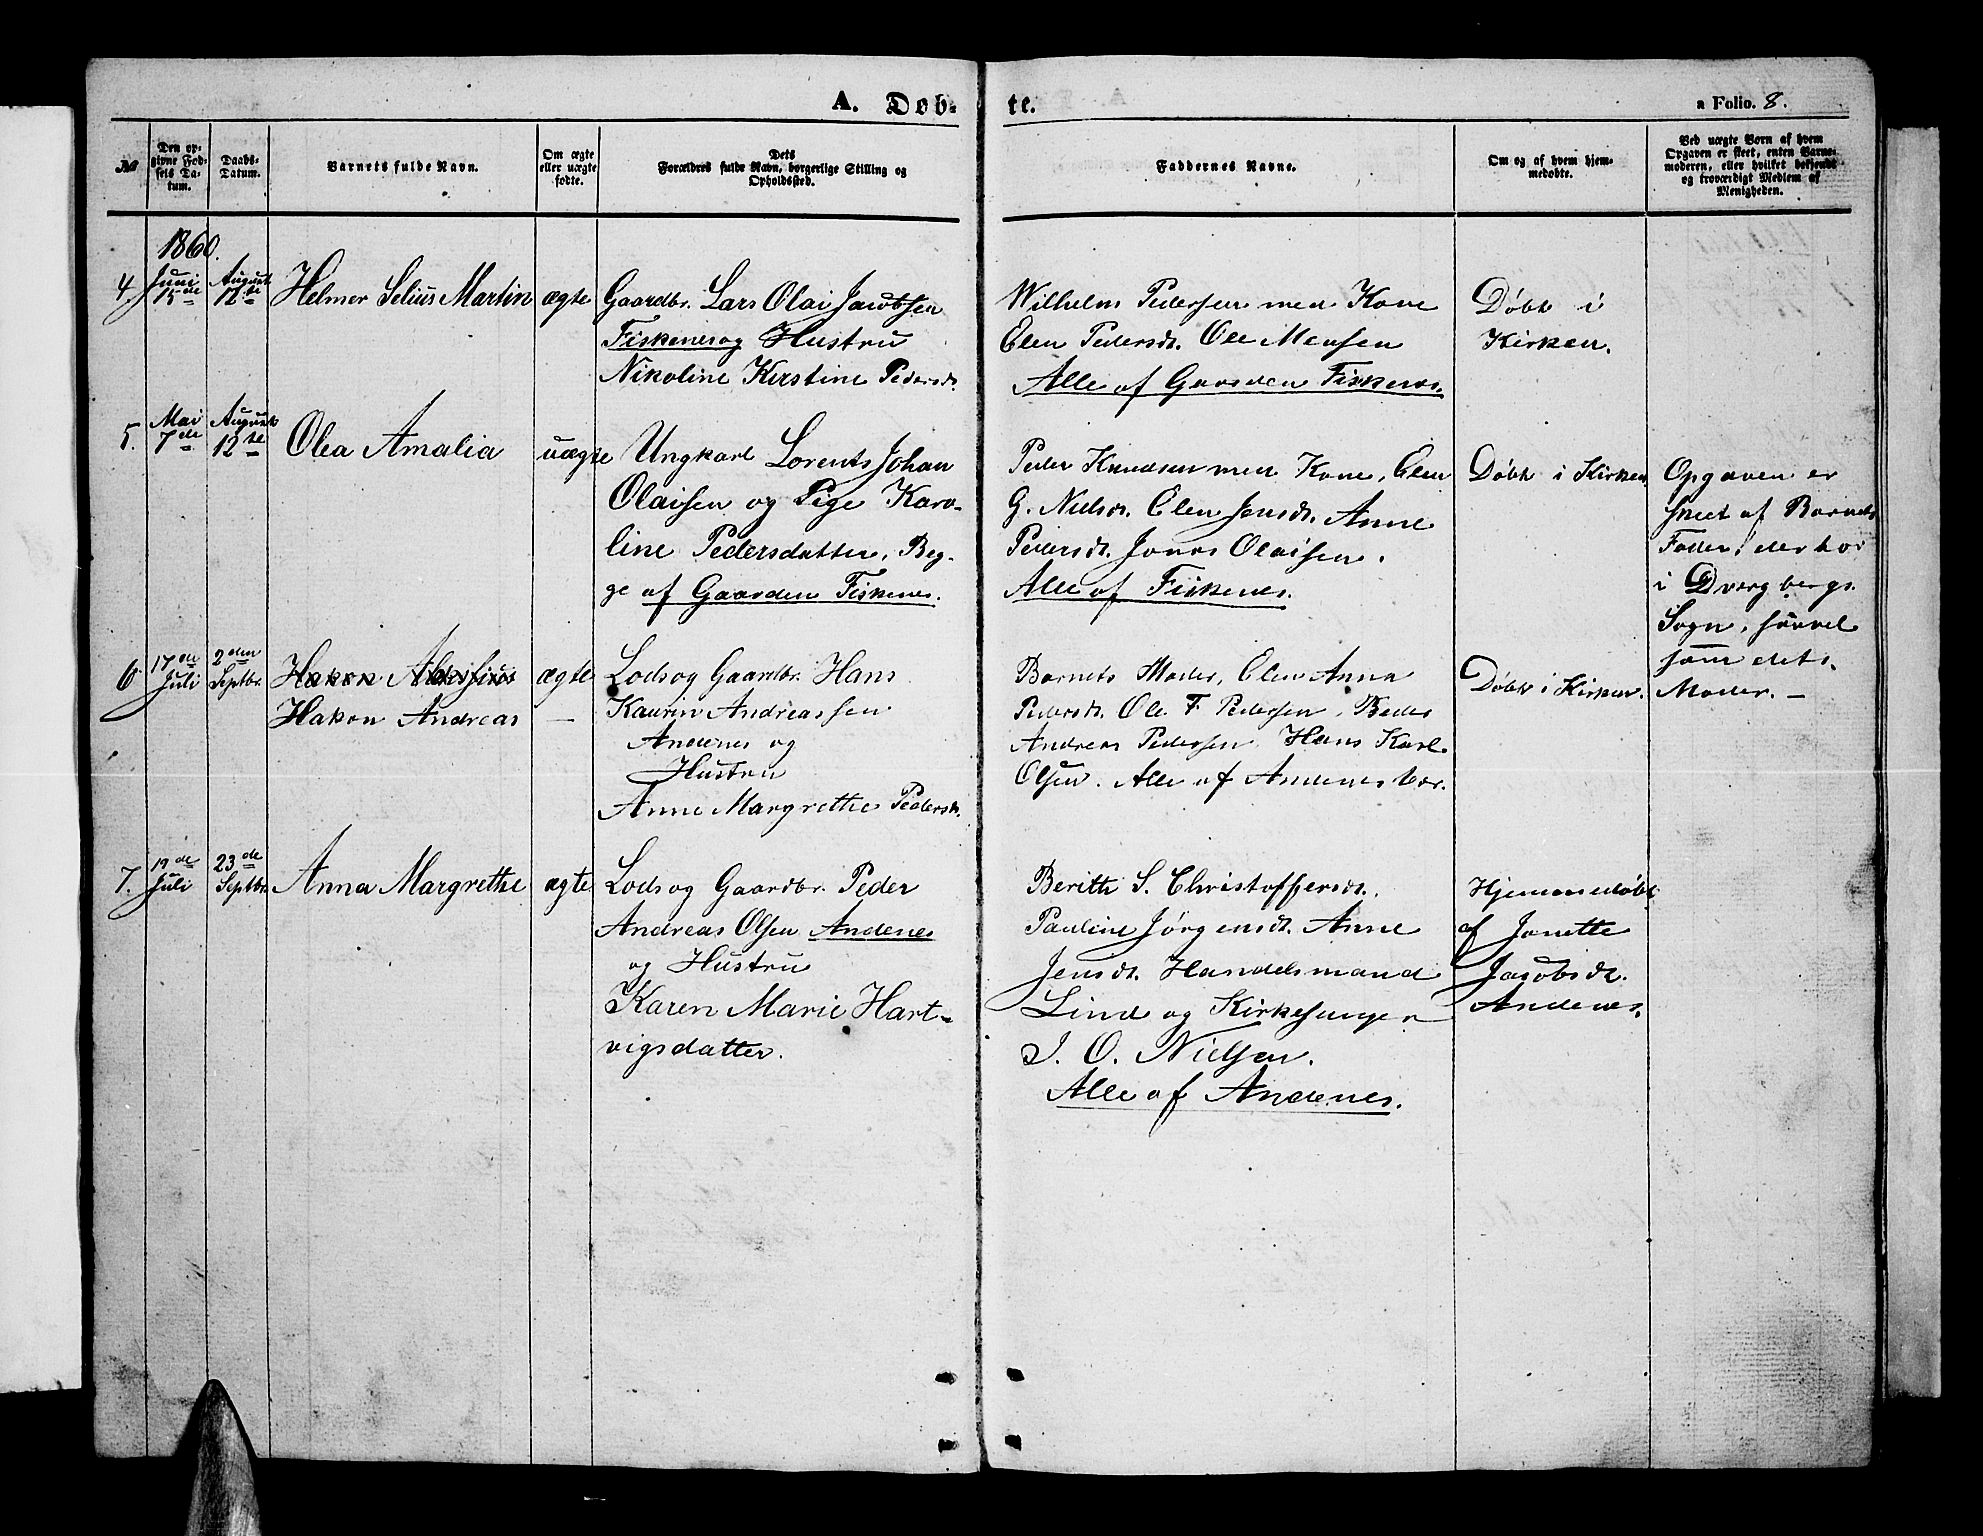 A. Døb-
te.
a Folio. 8.
№
Den op-
givne Fød-
sels Da-
tum.
Daabs-
Datum.
Barnets fulde Navn.
Om ægte
eller uægte
fødte.
Dets
Forældres fulde Navn, borgerlige Stilling og
Opholdssted.
Faddernes Navne.
Om og af hvem hjem-
medøbte.
Ved uægte Børn af hvem
Opgaven er skeet, enten Barne-
moderen, eller hvilket bekjendt
og troværdigt Medlem af
Menigheden.
1860.
4.
Juni
15de
August
12te
Helmer Selius Martin
ægte
Gaardbr. Lars Olai Jacobsen
Fiskenes og Hustru
Nikoline Kirstine Pedersdt.
Wilhelm Pedersen med Kone
Elen Pedersdt. Ole Monsen
Alle af Gaarden Fiskenes.
Døbt i
Kirken.
5.
Mai
7de
August
12te
Olea Amalia
uægte
Ungkarl Lorents Johan
Olaisen og Pige Karo-
line Pedersdatter, Beg-
ge af Gaarden Fiskenes.
Peder Knudsen med Kone, Elen
G. Nielsdt. Elen Jensdt. Anne
Pedersdt. Jonas Olaisen.
Alle af Fiskenes.
Døbt i Kirken
Opgaven er
skeet af Barnets
Fader, der bor
i Dverbergs
Sogn, saavel
som dets
Moder. –
6
17de
Juli
2den
Septbr.
Hakon
Hakon Andreas
ægte
–
Lods og Gaardbr. Hans
Kaurin Andreassen
Andenes og
Hustru
Anne Margrethe Pedersdt.
Barnets Moder, Elen Anna
Pedersdt. Ole F. Pedersen, Peder
Andreas Pedersen, Hans Karl
Olsen. Alle af Andenes Vær.
Døbt i Kirken.
7.
19de
Juli
23de
Septbr.
Anna Margrethe
ægte
Lods og Gaardbr. Peder
Andreas Olsen Andenes
og Hustru
Karen Marie Hart-
vigsdatter.
Berith S. Christoffersdt.
Pauline Jørgensdt. Anne
Jensdt. Handelsmand
Lind og Kirkesanger
J. O. Nielsen.
Alle af Andenes.
Hjemmedøbt
af Janette
Jacobsdt.
Andenes.